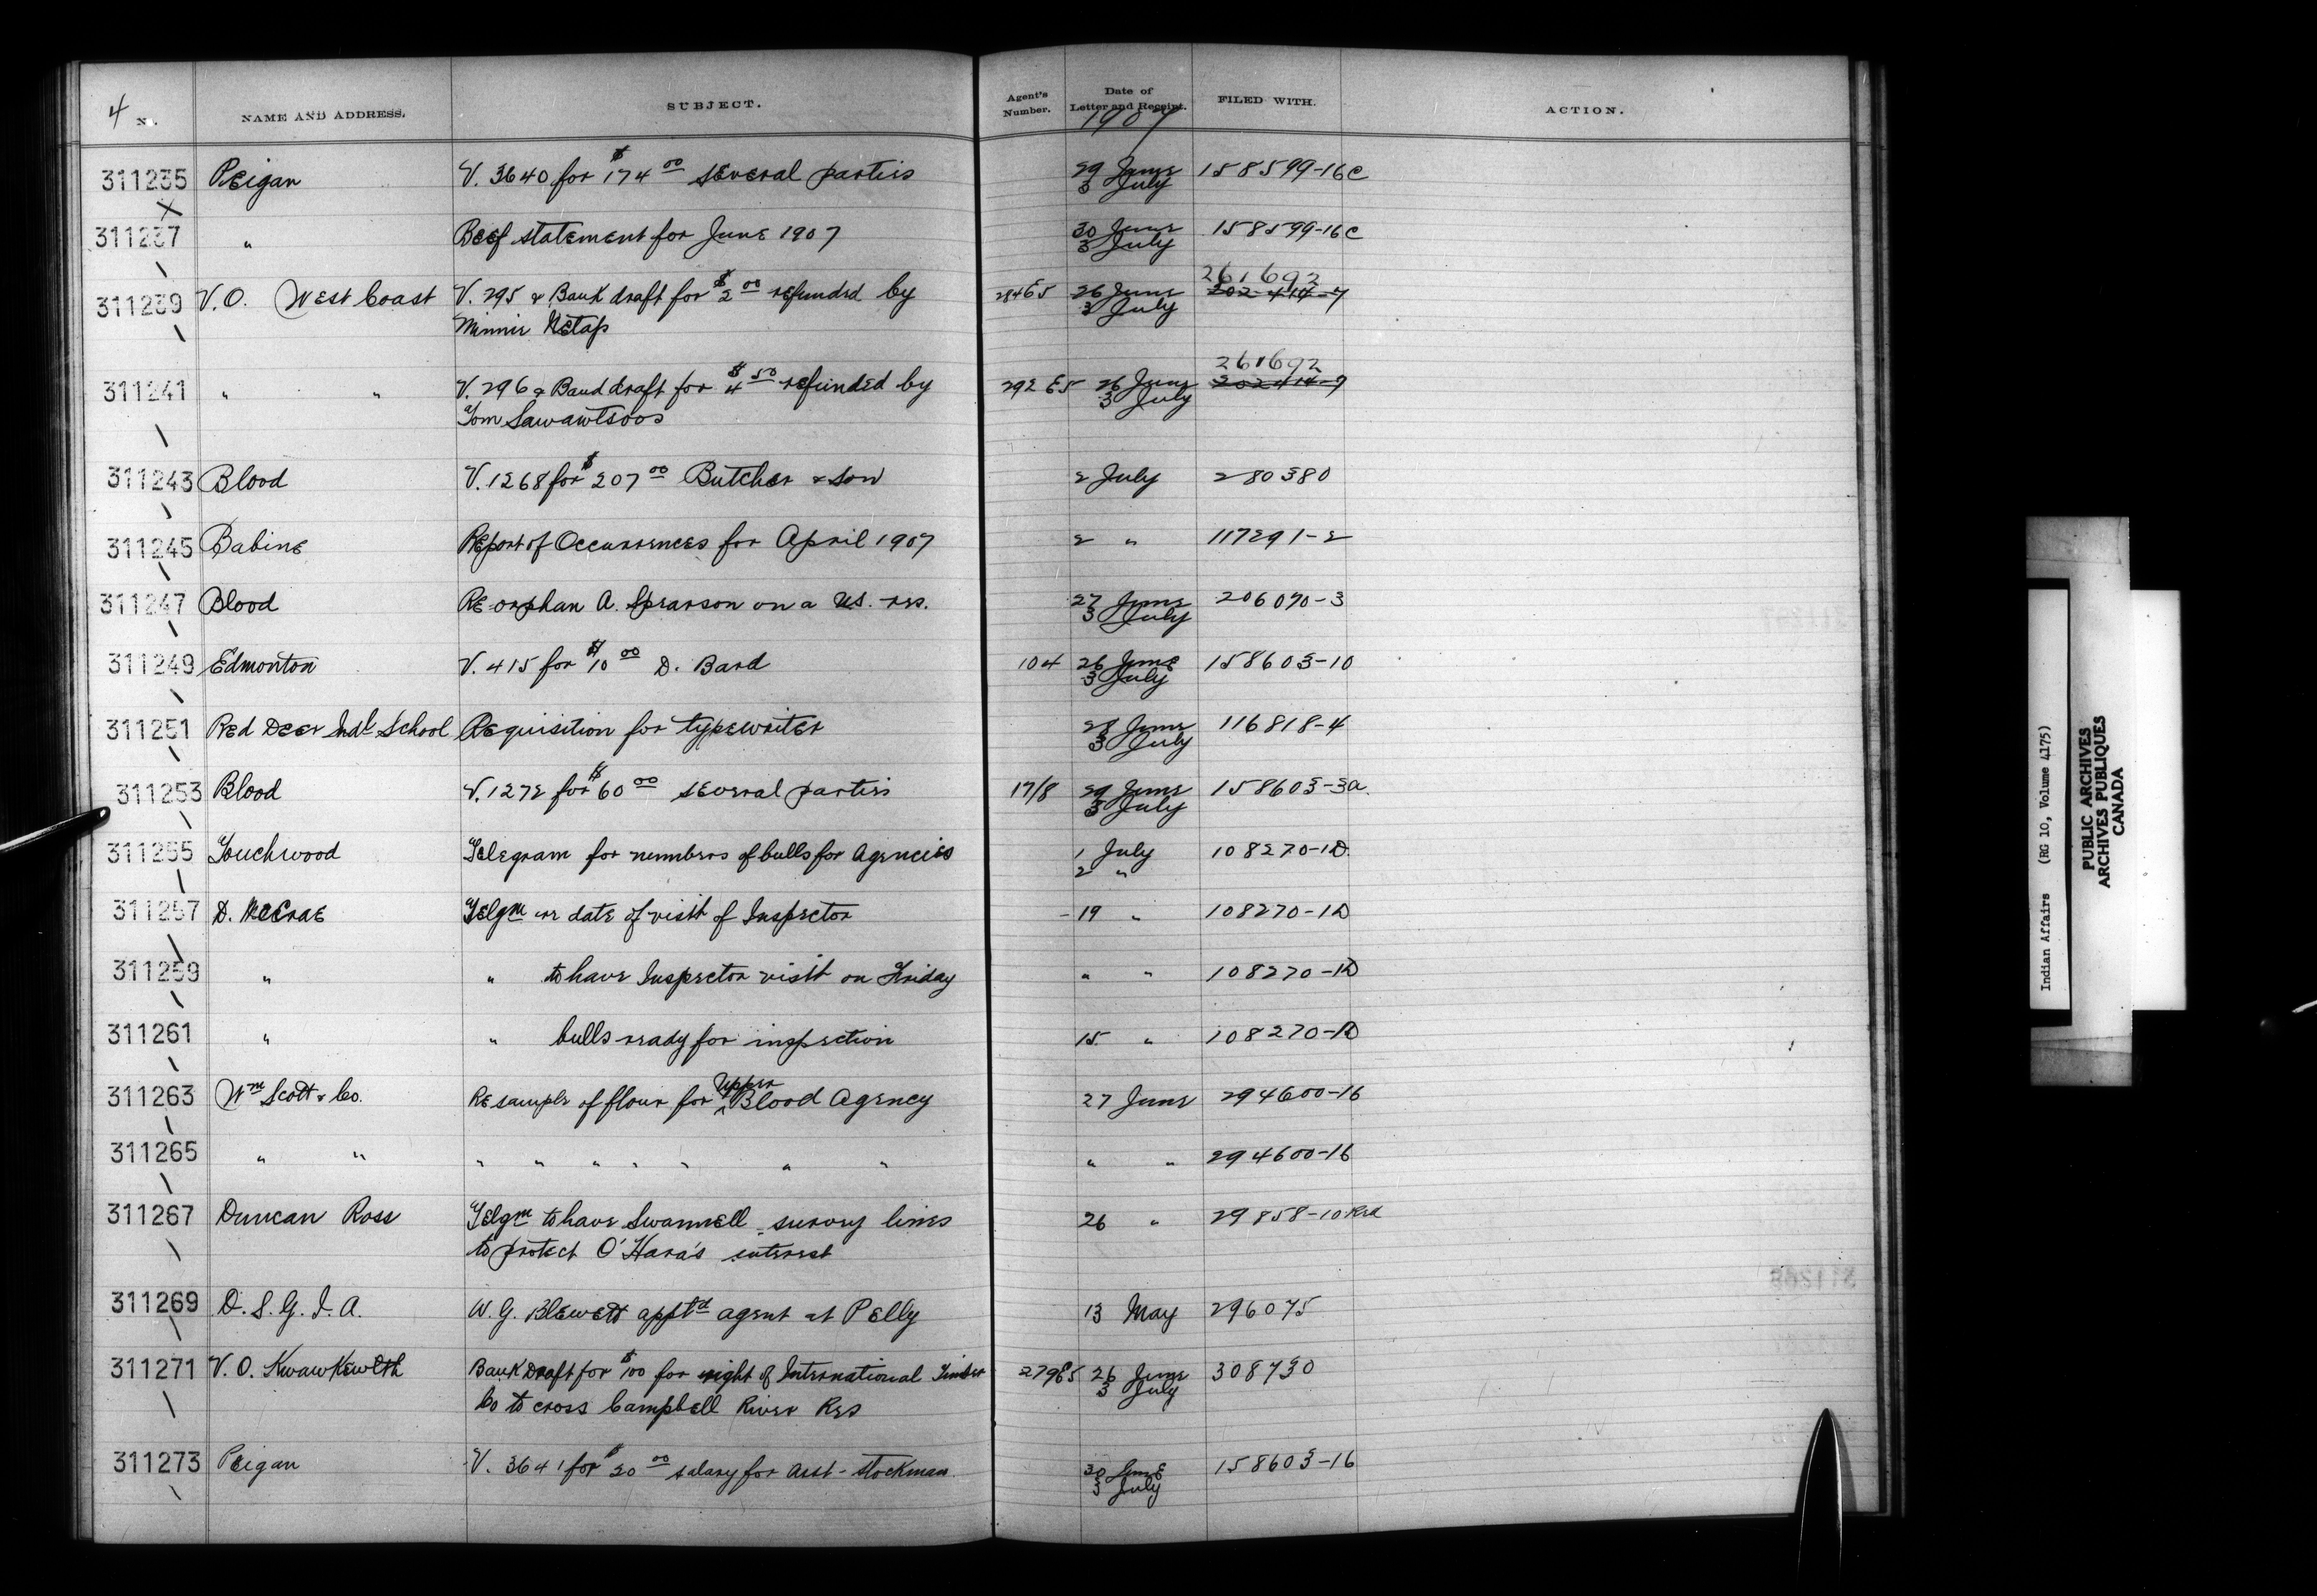 4 No. NAME AND ADDRESS. SUBJECT. Agent's Number. Date of Letter and Receipt. FILED WITH. ACTION.
1907
311235 Peigan V. 3640 for $174.00 several parties 29 June 158599-16c
3 July
311237 " Beef statement for June 1907 30 June 158599-16c
3 July
261692
311239 V.O. West Coast V. 295 & Bank draft for $2.00 refunded by 28465 26 June 202414-7
Minnie Netap 3 July
261692
311241 " " V. 296 & Band draft for $4.50 refunded by 292 65 26 June 202414-7
Tom Sawawtsoos 3 July
311243 Blood V. 1268 for $207.00 Butcher & Son 2 July 280380
311245 Babine Report of Occurrences for April 1907 2 " 117291-2
311247 Blood Re orphan A. Spearson on a U.S. res. 27 June 206070-3
3 July
311249 Edmonton V. 415 for $10.00 D. Bard 104 26 June 158603-10
3 July
311251 Red Deer Indl School Requisition for typewriter 28 June 116818-4
3 July
311253 Blood V. 1272 for $60.00 several parties 17/8 29 June 158603-3a
3 July
311255 Touchwood Telegram for numbers of bulls for Agencies 1 July 108270-1D
2 "
311257 D. McCrae Telgm re date of visit of Inspector -19 " 108270-1D
311259 " " to have Inspector visit on Friday " " 108270-1D
311261 " " bulls ready for inspection 15 " 108270-1D
311263 Wm Scott & Co. Re sample of flour for Upper Blood Agency 27 June 294600-16
311265 " " " " " " " " " " " 294600-16
311267 Duncan Ross Telgm to have Swannell survey lines 26 " 29858-10
to protect O'Hara's interest
311269 D.S.G.I.A. W.G. Blewett apptd agent at Pelly 13 May 296075
311271 V.O. Kwawkewlth Bank Draft for $100 for right of International Timber 27965 26 June 308730
Co to cross Campbell River Res 3 July
311273 Peigan V. 3641 for $20.00 salary for asst-stockman 30 June 158603-16
3 July
Indian Affairs (RG 10, Volume 4175)
PUBLIC ARCHIVES
ARCHIVES PUBLIQUES
CANADA